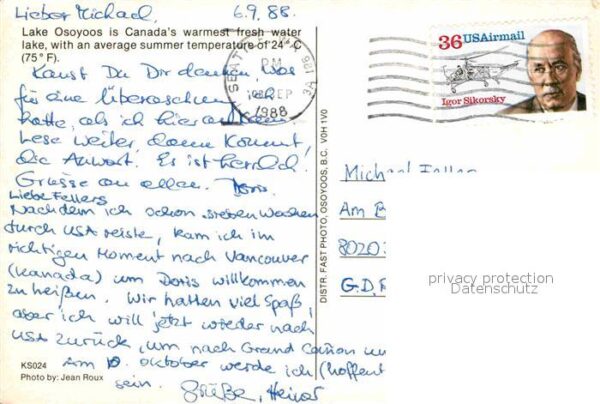 Lieber Michael, 6.9.88.
Lake Osoyoos is Canada's warmest fresh water
lake, with an average summer temperature of 24° C
(75° F).
Kanst Du Dir denken, was
für eine Überraschung ich
hatte, als ich hier ankam
Lese weiter, dann kommt
die Antwort. Es ist herrlich!
Grüsse an allen. Doris.
Liebe Fellers
Nachdem ich schon sieben Wochen
durch USA reiste, kam ich im
richtigen Moment nach Vancouver
(Kanada) um Doris willkommen
zu heißen. Wir hatten viel Spaß,
aber ich will jetzt wieder nach
USA zurück, um nach Grand Cañon
Am 10. oktober werde ich (hoffent
sein. Grüße,
KS024
Photo by: Jean Roux
DISTR. FAST PHOTO, OSOYOOS, B.C. V0H 1V0
SEATTLE
PM
SEP
1988
36 USAirmail
Igor Sikorsky
Michael
Am
8020
G.D.
privacy protection
Datenschutz